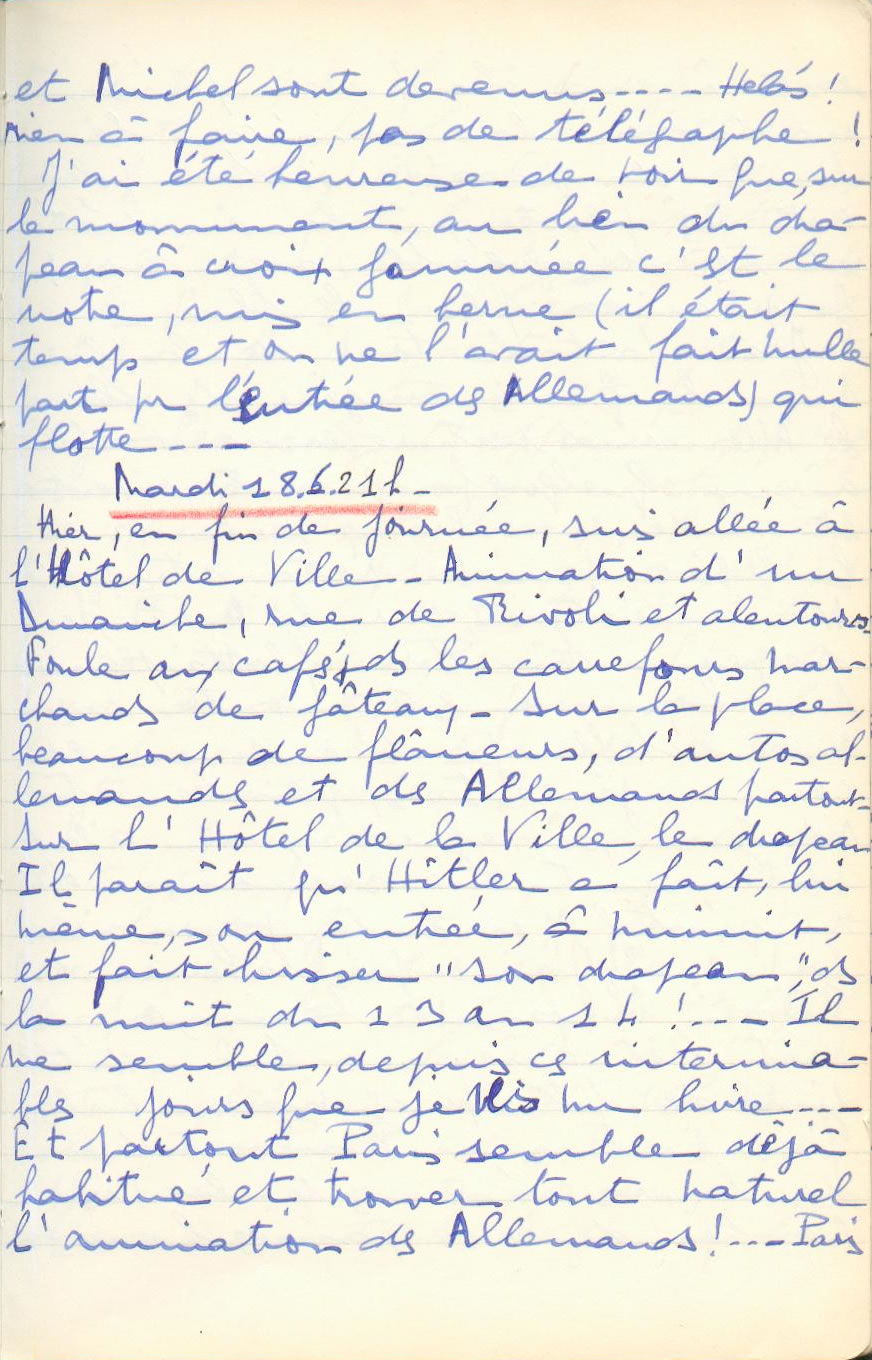 et Michel sont devenus---- Helás!
rien à faire, pas de télégraphe!
J'ai été heureuse de voir que, sur
le monument, au lieu du dra-
peau à croix gammée c'est le
notre, mis en berne (il était
temps et on ne l'avait fait nulle
part pr l'entrée des Allemands) qui
flotte---
Mardi 18.6.21h-
Hier, en fin de journée, suis allée à
l'Hôtel de Ville - Animation d'un
Dimanche, rue de Rivoli et alentours-
Foule aux cafés, ds les carrefours mar-
chands de gâteaux - Sur la place,
beaucoup de flâneurs, d'autos al-
lemandes et des Allemands partout-
Sur l'Hôtel de la Ville, le drapeau
Il paraît qu'Hitler a fait, lui
même, son entrée, à minuit,
et fait hisser "son drapeau", ds
la nuit du 13 au 14!--- Il
me semble, depuis ces intermina-
bles jours que je lis un livre---
Et partout Paris semble déjà
habitué et trouver tout naturel
l'animation des Allemands!--- Paris